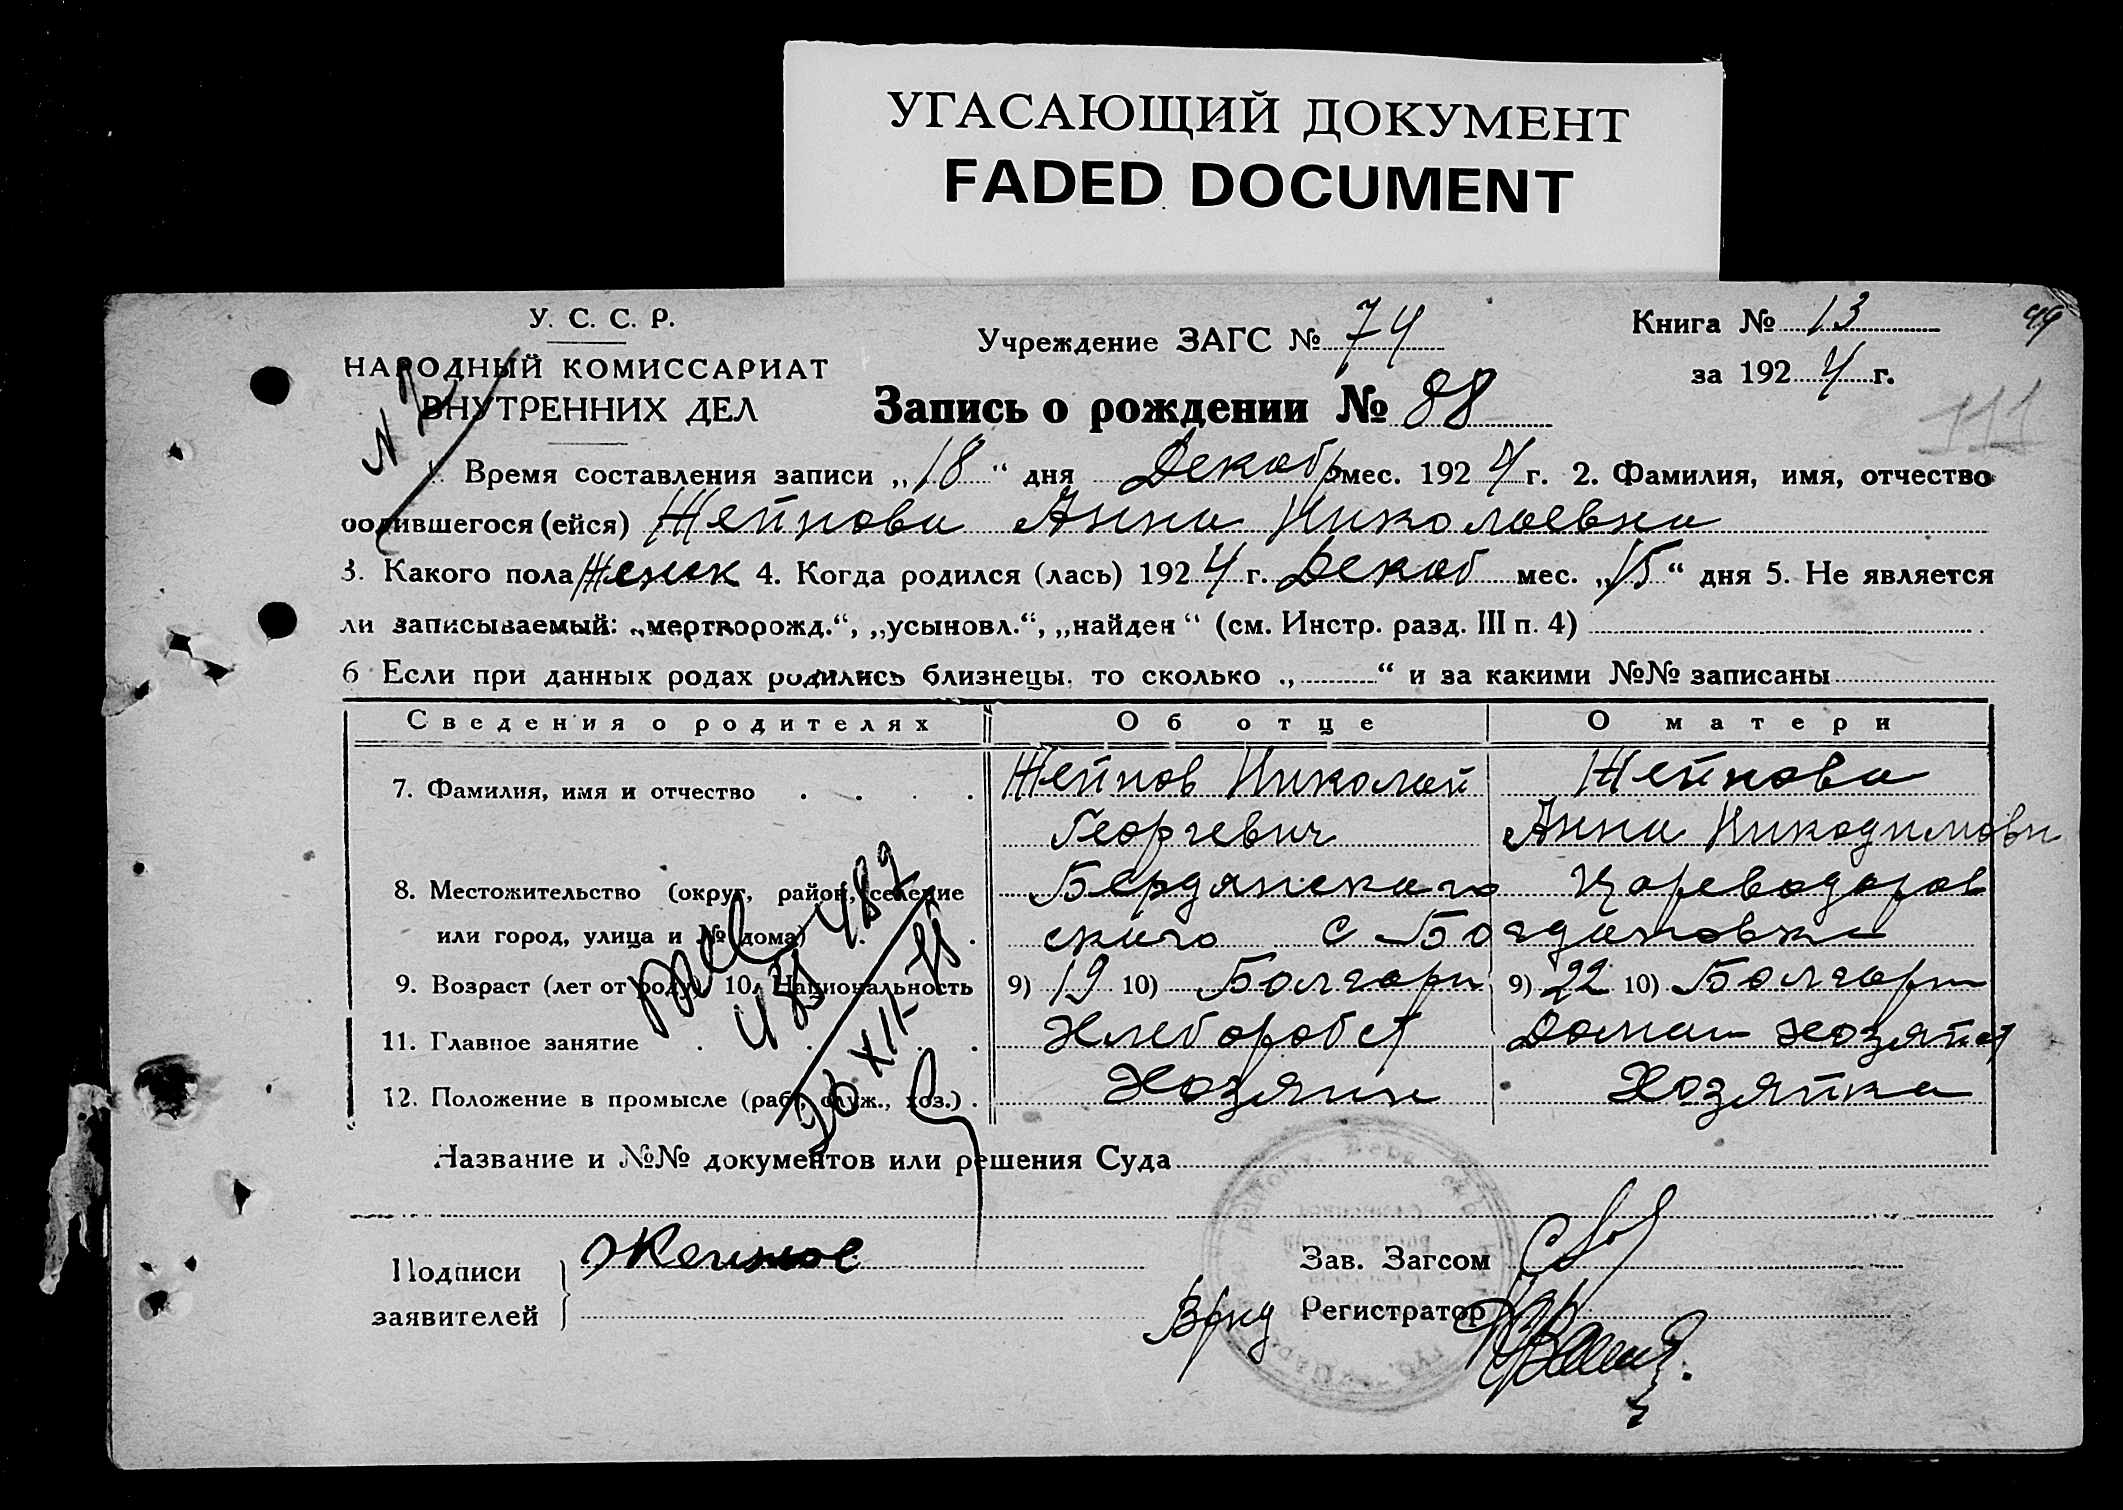 УГАСАЮЩИЙ ДОКУМЕНТ
FADED DOCUMENT
У. С. С. Р.
НАРОДНЫЙ КОМИССАРИАТ
ВНУТРЕННИХ ДЕЛ
Учреждение ЗАГС № 74
Книга № 13
за 1924 г.
111
Запись о рождении № 88
1. Время составления записи „18“ дня Декабр мес. 1924 г. 2. Фамилия, имя, отчество
родившегося (ейся) Жейнова Анна Николаевна
3. Какого пола Женск 4. Когда родился (лась) 1924 г. Декаб мес. „15“ дня 5. Не является
ли записываемый: „мертворожд.“, „усыновл.“, „найден“ (см. Инстр. разд. III п. 4)
6 Если при данных родах родились близнецы, то сколько „ “ и за какими №№ записаны
Сведения о родителях Об отце О матери
7. Фамилия, имя и отчество Жейнов Николай Жейнова
Георгевич Анна Никодимовн
8. Местожительство (округ, район, селение Бердянскаго Цареводаров
или город, улица и № дома) скаго с Богдановка
9. Возраст (лет от роду) 10. Национальность 9) 19 10) Болгари 9) 22 10) Болгари
11. Главное занятие Хлебороб Домаш хозяйст
12. Положение в промысле (раб., служ., хоз.) Хозяин Хозяйка
Название и №№ документов или решения Суда
Подписи
заявителей
Жейнов
Зав. Загсом
Врид Регистратор